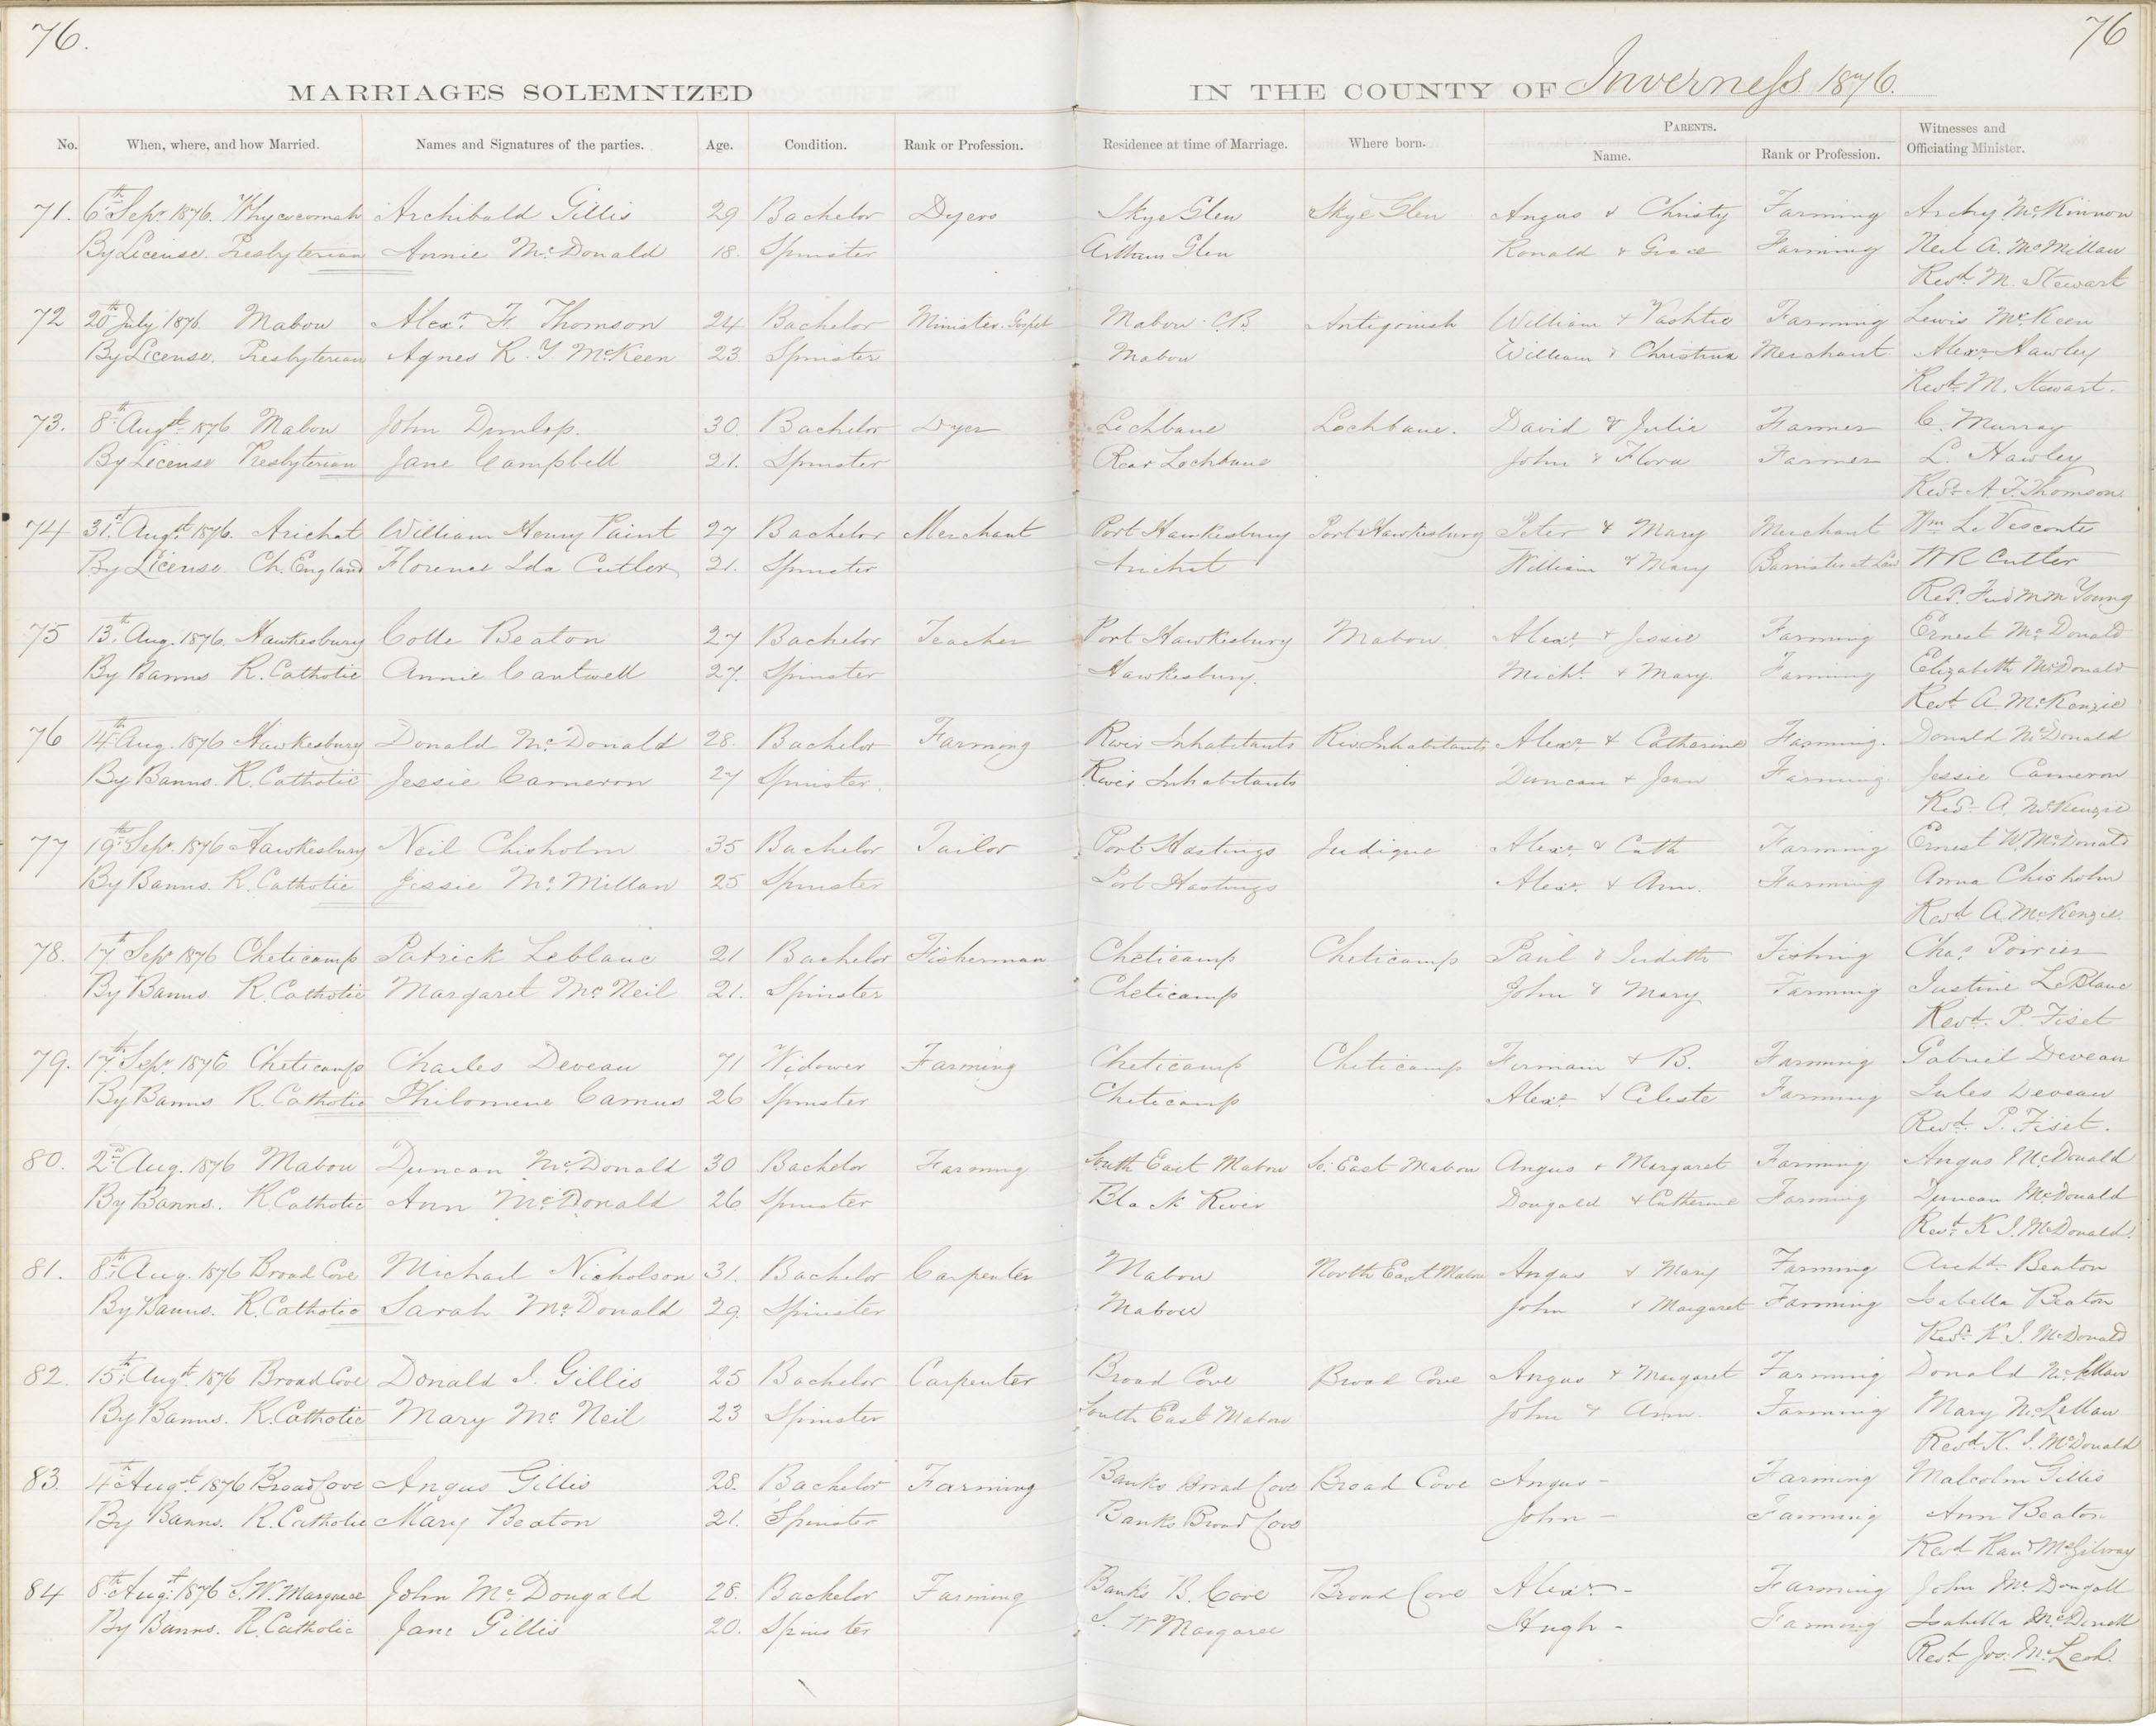 76. 76
MARRIAGES SOLEMNIZED IN THE COUNTY OF Inverness 1876.
No. When, where, and how Married. Names and Signatures of the parties. Age. Condition. Rank or Profession. Residence at time of Marriage. Where born. PARENTS. Name. Rank or Profession. Witnesses and Officiating Minister.
71. 6th Sepr 1876. Whycocomah Archibald Gillis 29 Bachelor Dyers Skye Glen Skye Glen Angus & Christy Farming Archy McKinnon
By License. Presbyterian Annie McDonald 18. Spinster Glen Ronald & Grace Farming Neil A. McMillan
Revd. M. Stewart
72 20th July 1876. Mabou Alexr. F. Thomson 24 Bachelor Minister. Gospel Mabou C.B Antigonish William & Vashtie Farming Lewis McKeen
By License. Presbyterian Agnes R. Y. McKeen 23. Spinster Mabou William & Christina Merchant Alexr Hawley
Revd. M. Stewart.
73. 8th Augst 1876 Mabou John Dunlop. 30. Bachelor Dyer Lochbane Lochbane. David & Julie Farmer C. Murray
By License Presbyterian Jane Campbell 21. Spinster Rear Lochbane John & Flora Farmer L. Hawley
Revd. A. F. Thomson
74 31st Augst 1876. Arichat William Henry Paint 27 Bachelor Merchant Port Hawkesbury Port Hawkesbury Peter & Mary Merchant Wm Le Visconte
By License Ch. England Florence Ida Cutler 21. Spinster Arichat William & Mary Barrister at Law W R Cutler
Revd. Young
75 13th Aug. 1876. Hawkesbury Colle Beaton 27 Bachelor Teacher Port Hawkesbury Mabou. Alexr. & Jessie Farming Ernest McDonald
By Banns R. Catholic Annie Cantwell 27. Spinster Hawkesbury. Michl. & Mary. Farming Elizabeth McDonald
Revd. A. McKenzie
76 14th Aug. 1876 Hawkesbury Donald McDonald 28. Bachelor Farming River Inhabitants Riv. Inhabitants Alexr. & Catherine Farming. Donald McDonald
By Banns. R. Catholic Jessie Cameron 27 Spinster. River Inhabitants Duncan & Jean Farming. Jessie Cameron
Revd. A. McKenzie
77 19th Sepr. 1876 Hawkesbury Neil Chisholm 35 Bachelor Tailor Port Hastings Judique Alexr. & Cath Farming Ernest W. McDonald
By Banns. R. Catholic Jessie McMillan 25 Spinster Port Hastings Alexr. & Ann. Farming Anna Chisholm
Revd A. McKenzie.
78. 17th Sepr 1876 Cheticamp Patrick Leblanc 21 Bachelor Fisherman Cheticamp Cheticamp Paul & Judith Fishing Chas. Poirier
By Banns. R. Catholic Margaret McNeil 21. Spinster Cheticamp John & Mary Farming Justine LeBlanc
Revd. P. Fiset
79. 17th Sepr. 1876 Cheticamp Charles Deveau 71 Widower Farming Cheticamp Cheticamp Firmain & B. Farming Gabriel Deveau
By Banns R. Catholic Philomene Camus 26 Spinster Cheticamp Alexr. & Celeste Farming Jules Deveau
Revd. P. Fiset.
80. 2nd Aug. 1876 Mabou Duncan McDonald 30 Bachelor Farming South East Mabou So. East Mabou Angus & Margaret Farming Angus McDonald
By Banns. R. Catholic Ann McDonald 26 Spinster Black River Dougald & Catherine Farming Duncan McDonald
Revd. K. J. McDonald.
81. 8th Aug. 1876 Broad Cove Michael Nicholson 31. Bachelor Carpenter Mabou North East Mabou Angus & Mary Farming Archd. Beaton
By Banns. R. Catholic Sarah McDonald 29. Spinster Mabou John & Margaret Farming Isabella Beaton
Revd. K. J. McDonald
82. 15th Augst. 1876 Broad Cove Donald J. Gillis 25 Bachelor Carpenter Broad Cove Broad Cove Angus & Margaret Farming Donald McLellan
By Banns. R. Catholic Mary McNeil 23 Spinster South East Mabou John & Ann. Farming Mary McLellan
Revd. K. J. McDonald
83. 4th Augst. 1876 Broad Cove Angus Gillis 28. Bachelor Farming Banks Broad Cove Broad Cove Angus - Farming Malcolm Gillis
By Banns. R. Catholic Mary Beaton 21. Spinster Banks Broad Cove John - Farming Ann Beaton
Revd McGilvray
84 8th Augt. 1876 S.W. Margaree John McDougald 28. Bachelor Farming Banks B. Cove Broad Cove Alexr. - Farming John McDougall
By Banns. R. Catholic Jane Gillis 20. Spinster S. W Margaree Hugh - Farming Isabella
Revd. Jos. McLeod.